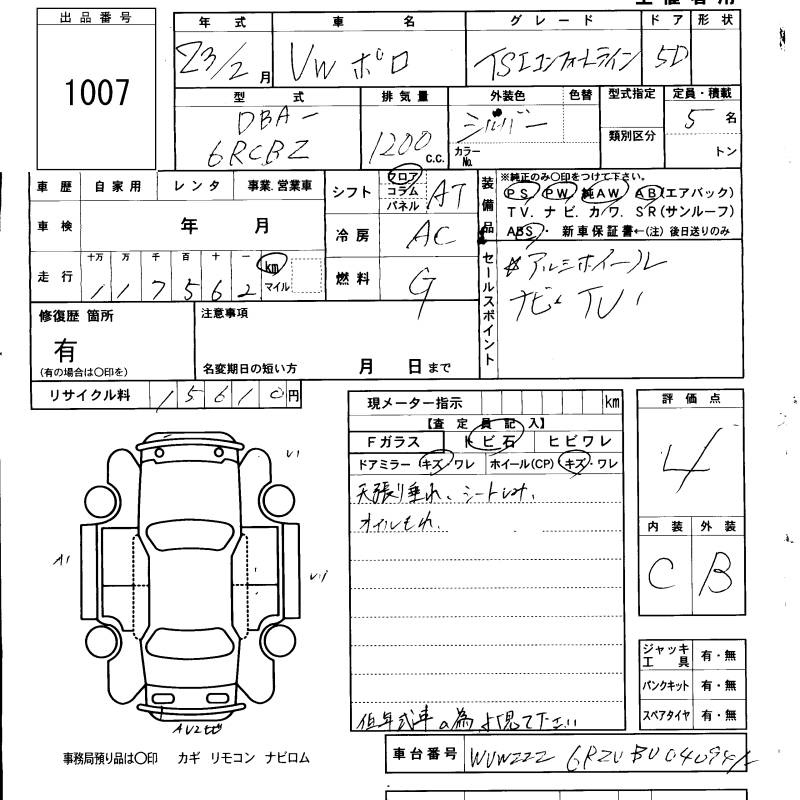 出品番号
1007
年式 車名 グレード ドア 形状
23/2月 VW ポロ TSIコンフォートライン 5D
型式 排気量 外装色 色替 型式指定 定員・積載
DBA-
6RCBZ 1200 C.C. シルバー カラーNo. 類別区分 5名
トン
車歴 自家用 レンタ 事業.営業車
車検 年 月
走行 十万 万 千 百 十 一 km マイル
117562
シフト フロア コラム パネル AT
冷房 AC
燃料 G
装備品
※純正のみ○印をつけて下さい。
PS PW 純AW AB(エアバック)
TV. ナビ. カワ. SR(サンルーフ)
ABS・ 新車保証書←(注)後日送りのみ
セールスポイント
アルミホイール
ナビ TV
修復歴 箇所
有
(有の場合は○印を)
注意事項
名変期日の短い方 月 日まで
リサイクル料 15610円
現メーター指示 km
【査定員記入】
Fガラス トビ石 ヒビワレ
ドアミラー キズ・ワレ ホイール(CP) キズ・ワレ
天張り垂れ、シートしみ、
オイルもれ、
低年式車の為、よく見て下さい
評価点
4
内装 外装
C B
ジャッキ工具 有・無
パンクキット 有・無
スペアタイヤ 有・無
U1
A1
AU2
事務局預り品は○印 カギ リモコン ナビロム
車台番号 WVWZZZ 6RZ BU04094